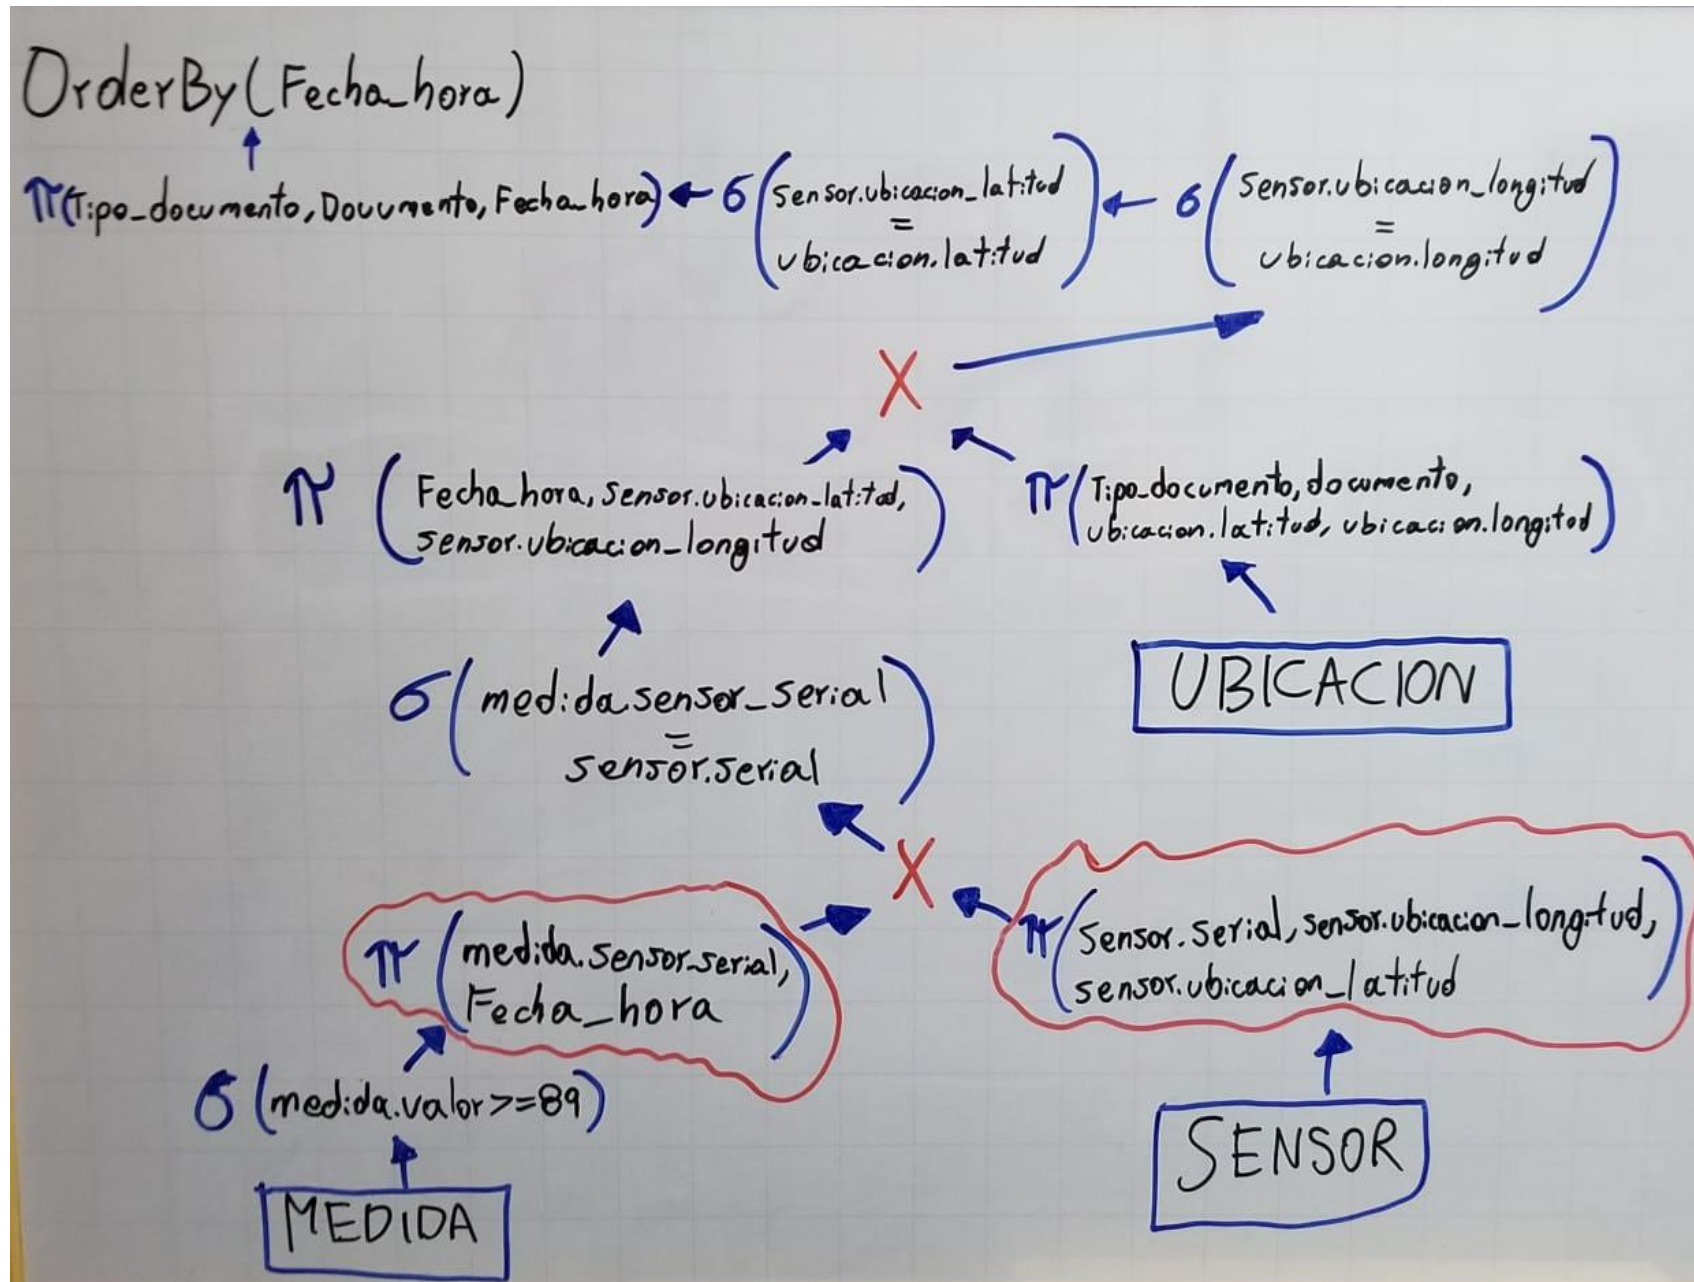 OrderBy(Fecha_hora)
π(Tipo_documento, Documento, Fecha_hora) ← σ(sensor.ubicacion_latitud
=
ubicacion.latitud) ← σ(sensor.ubicacion_longitud
=
ubicacion.longitud)
X
π(Fecha_hora, sensor.ubicacion_latitud,
sensor.ubicacion_longitud)
π(Tipo_documento, documento,
ubicacion.latitud, ubicacion.longitud)
UBICACION
σ(medida.sensor_serial
=
sensor.serial)
X
π(medida.sensor_serial,
Fecha_hora)
π(Sensor.serial, sensor.ubicacion_longitud,
sensor.ubicacion_latitud)
σ(medida.valor>=89)
SENSOR
MEDIDA